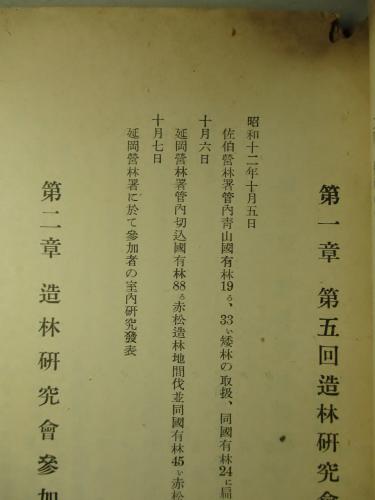 第一章 第五回造林硏究會
昭和十二年十月五日
佐伯營林署管內靑山國有林19ろ、33い矮林の取扱、同國有林24に扁
十月六日
延岡營林署管內切込國有林88ろ赤松造林地間伐並同國有林45い赤松
十月七日
延岡營林署に於て參加者の室內硏究發表
第二章 造林硏究會參加